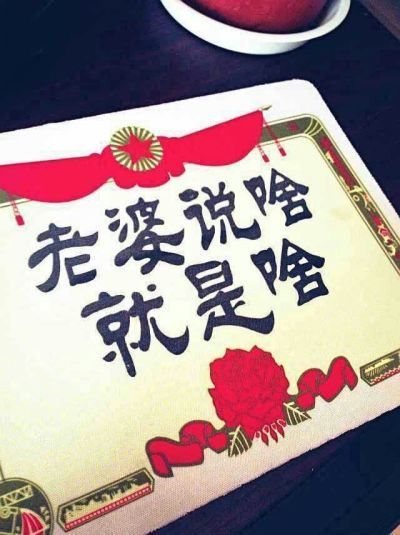 老婆说啥
就是啥